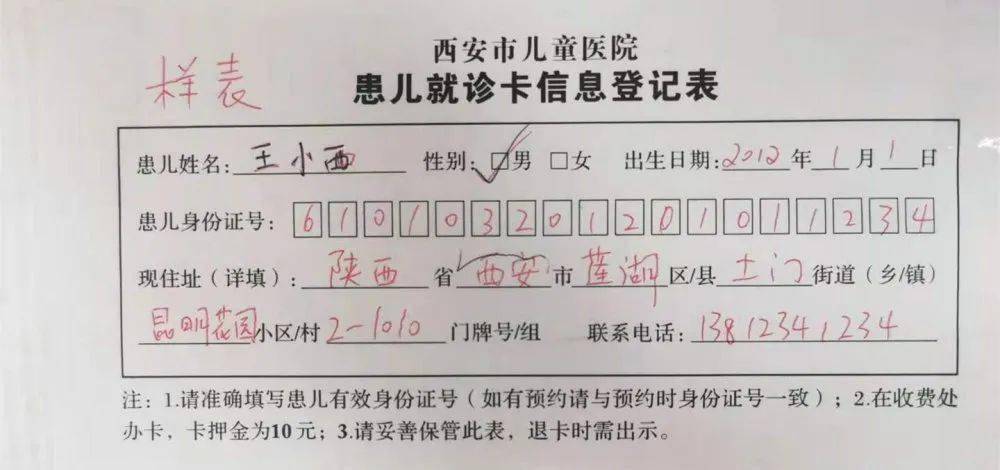 西安市儿童医院
样表
患儿就诊卡信息登记表
患儿姓名: 王小西 性别: ☑男 □女 出生日期: 2012 年 1 月 1 日
患儿身份证号: 610103201201011234
现住址（详填）: 陕西 省 西安 市 莲湖 区/县 土门 街道（乡/镇）
昆明花园 小区/村 2-1010 门牌号/组 联系电话: 13812341234
注：1.请准确填写患儿有效身份证号（如有预约请与预约时身份证号一致）；2.在收费处
办卡，卡押金为10元；3.请妥善保管此表，退卡时需出示。